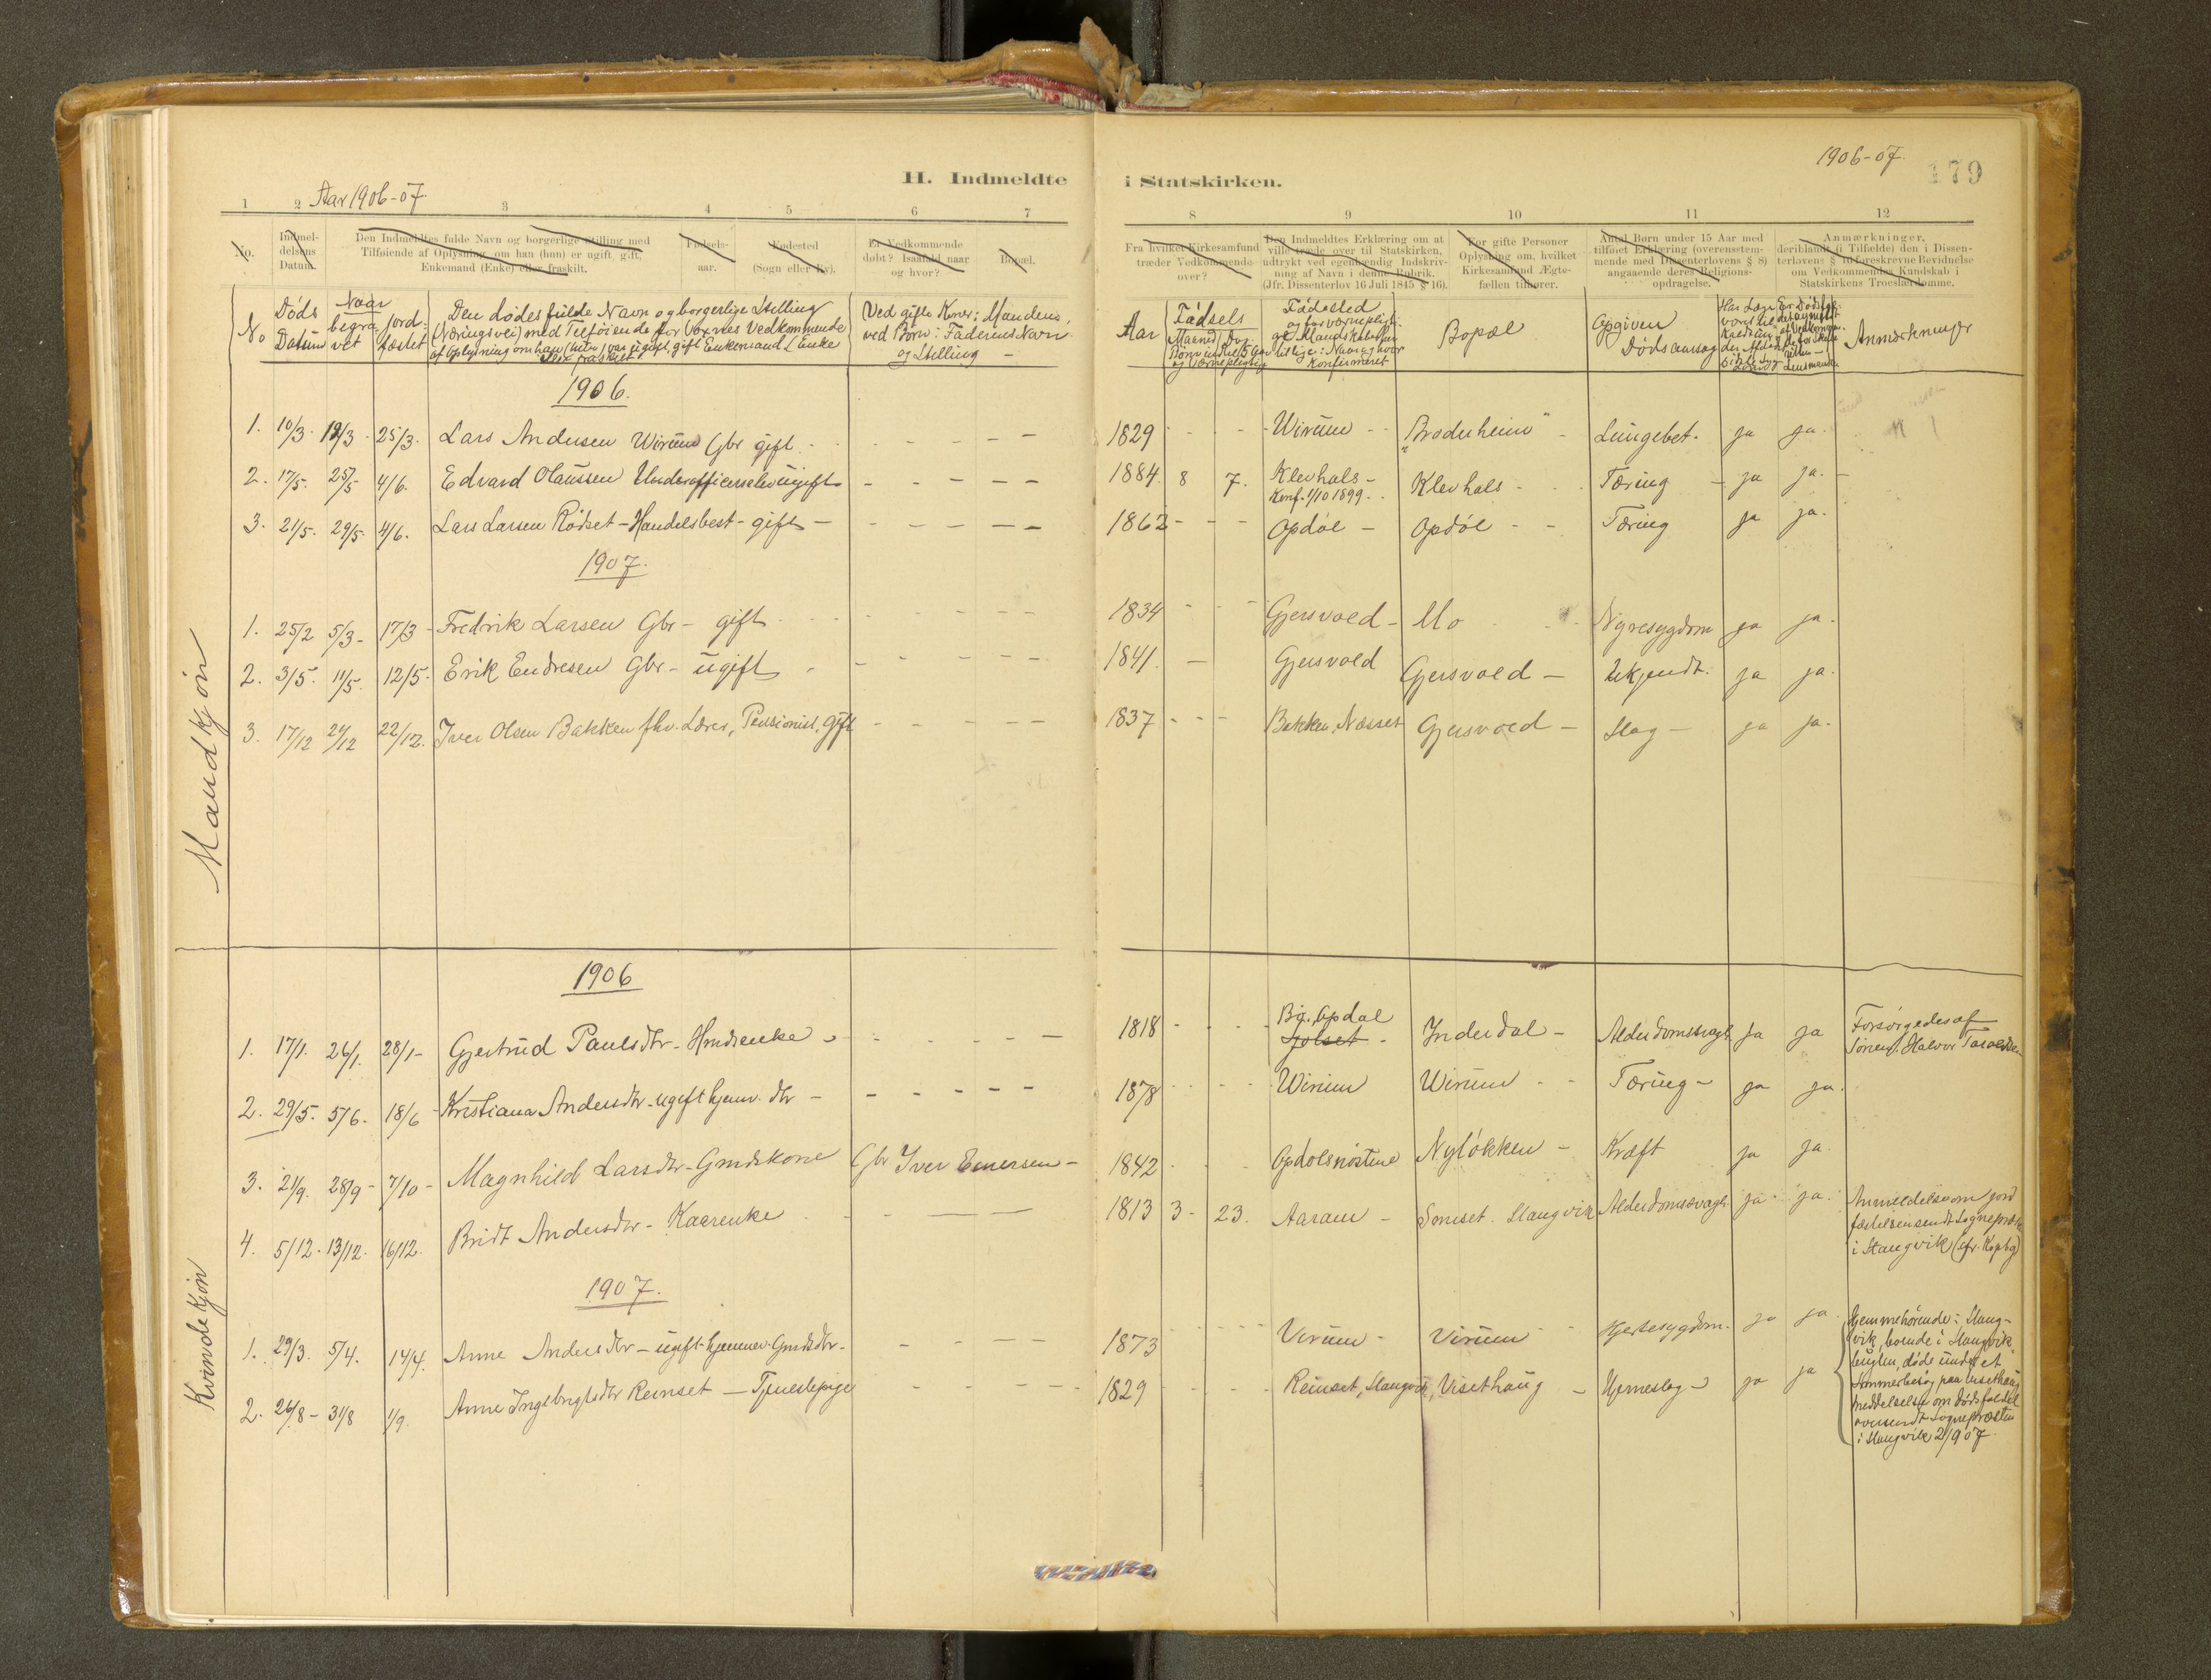 H. Indmeldte
i Statskirken.
1906-07.
179
Aar 1906-07.
1 2 3 4 5 6 7
8 9 10 11 12
No.
Indmel-
delsens
Datum.
Den Indmeldtes fulde Navn og borgerlige Stilling med
Tilføiende af Oplysning, om han (hun) er ugift, gift,
Enkemand (Enke) eller fraskilt.
Fødsels-
aar.
Fødested
(Sogn eller By).
Er Vedkommende
døbt? Isaafald naar
og hvor?
Bopæl.
Fra hvilket Kirkesamfund
træder Vedkommende
over?
Den Indmeldtes Erklæring om at
ville træde over til Statskirken,
udtrykt ved egenhændig Indskriv-
ning af Navn i denne Rubrik.
(Jfr. Dissenterlov 16 Juli 1845 § 16).
For gifte Personer
Oplysning om, hvilket
Kirkesamfund Ægte-
fællen tilhører.
Antal Børn under 15 Aar med
tilføiet Erklæring (overensstem-
mende med Dissenterlovens § 8)
angaaende deres Religions-
opdragelse.
Anmærkninger,
deriblandt (i Tilfælde) den i Dissen-
terlovens § 16 foreskrevne Bevidnelse
om Vedkommendes Kundskab i
Statskirkens Troeslærdomme.
No
Døds
Datum
Naar
begra-
vet
jord-
fæstet
Den dødes fulde Navn og borgerlige Stilling
(Næringsvei) med Tilføiende for Voxnes Vedkommende
af Oplysning om han (hun) var ugift, gift Enkemand (Enke
eller fraskilt
Ved gifte Koner: Mandens,
ved Børn: Faderens Navn
og Stilling -
Aar
Fødsels
Maaned Dag
Fødested
Konfirmeret
Bopæl
Opgiven
Dødsaarsag
Anmærkninger
Mandkjøn
1906.
1. 10/3 18/3 25/3. Lars Andersen Wirum Gbr gift - - - - - 1829 - - - Wirum - - "Broderheim" - Lungebet. ja ja.
2. 17/5. 25/5 4/6. Edvard Olaussen Underofficerselev ugift - - - - - 1884. 8 7. Klevhals - Klevhals - - Tæring - ja ja. -
Konf. 1/10 1899.
3. 21/5. 29/5. 4/6. Lars Larsen Rødset - Handelsbest - gift - - - - - - 1862 - - - Opdøl - Opdøl - - Tæring ja ja.
1907.
1. 25/2 5/3 - 17/3 - Fredrik Larsen Gbr - gift - - - - - 1834 - - - Gjersvold - Mo - - Nyresygdom ja ja.
2. 3/5. 11/5. 12/5. Erik Endresen Gbr - ugift - - - - - - 1841. - Gjersvold Gjersvold - Ukjendt. ja ja.
3. 17/12 21/12 22/12. Iver Olsen Bakken fhv. Lærer, Pensionist, gift - - - - - 1837 - - - Bakken, Næsset Gjersvold - Slag - ja ja.
Kvindekjøn
1906
1. 17/1. 26/1. 28/1 - Gjertrud Paulsdtr - Hmdsenke - - - - - 1818 - - - Bg. Opdal Inderdal - Alderdomssvagh ja ja Forsørgedes af
Jolset - Sønnen Halvor Taraldsen
2. 29/5. 5/6. 18/6 - Kristiana Andersdtr - ugift hjemv. dtr - - - - - - 1878 - - - Wirum Wirum - - Tæring - ja ja.
3. 21/9. 28/9 - 7/10 - Magnhild Larsdtr - Gmdskone Gbr Iver Einersen - 1842 - - - Opdølsnøstene Nyløkken - Kræft ja ja.
4. 5/12. 13/12. 16/12. Bridt Andersdtr - Kaarenke - - - - 1813 3 - 23. Aaram - Somset. Stangvik Alderdomssvagh ja ja. Anmeldelse om jord
fæstelsen sendt Sognepræst
i Stangvik (cfr. Kopbg)
1907.
1. 29/3. 5/4. 14/4. Anne Andersdtr - ugift hjemmev. Gmdsdtr. - - - - 1873 - - - - Virum - Virum - - Hjertesygdom. ja ja.
2. 26/8 - 31/8 1/9. Anne Ingebrigtsdtr Reinset - Tjenestepige - - - - - 1829 - - - - Reinset, Stangvik, Visethaug - Hjerneslag - ja ja
Hjemmehørende i Stang-
vik, boende i Stangvik-
bugten, døde under et
Sommerbesøg paa Visethaug
meddelelse om dødsfaldet
oversendt Sognepræsten
i Stangvik 2/9 07.